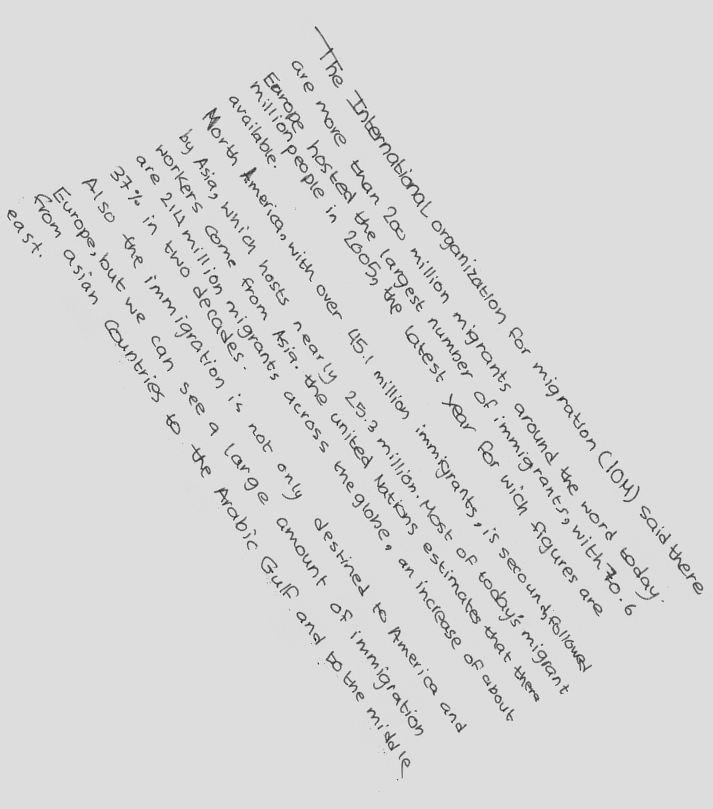 The International organization for migration (IOM) said there
are more than 200 million migrants around the word today.
Europe hosted the largest number of immigrants, with 70.6
million people in 2005, the latest year for wich figures are
available.
North America, with over 45.1 million immigrants, is secound, followed
by Asia, which hosts nearly 25.3 million. Most of today's migrant
workers come from Asia. the united Nations estimates that there
are 214 million migrants across the globe, an increase of about
37% in two decades.
Also the immigration is not only destined to America and
Europe, but we can see a large amount of immigration
from asian countries to the Arabic Gulf and to the middle
east.